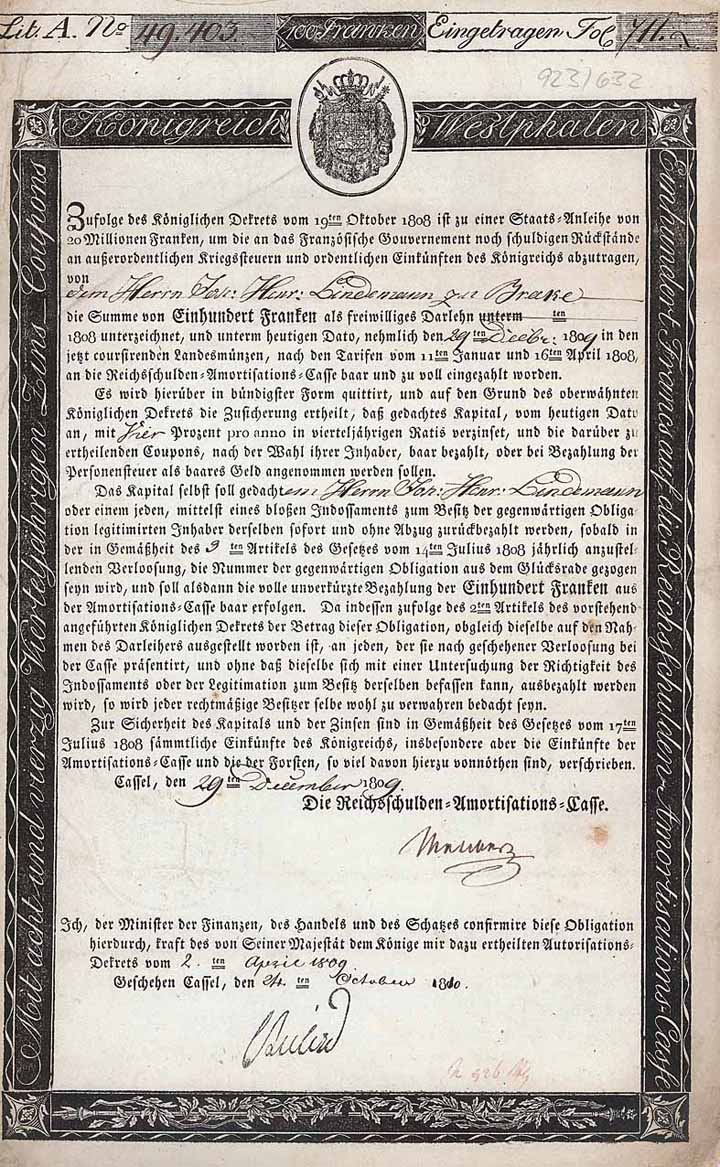 Lit. A. No 49.403. 100 Franken Eingetragen Fol. 711.
923/632
Königreich Westphalen
Mit acht und vierzig vierteljährigen Zins-Coupons
Einhundert Francs auf die Reichsschulden-Amortisations-Casse
Zufolge des Königlichen Dekrets vom 19ten Oktober 1808 ist zu einer Staats-Anleihe von
20 Millionen Franken, um die an das Französische Gouvernement noch schuldigen Rückstände
an außerordentlichen Kriegssteuern und ordentlichen Einkünften des Königreichs abzutragen,
von
dem Herrn Joh: Henr: Lindemann zu Brake
die Summe von Einhundert Franken als freiwilliges Darlehn unterm ten
1808 unterzeichnet, und unterm heutigen Dato, nehmlich den 29ten Decbr: 1809 in den
jetzt coursirenden Landesmünzen, nach den Tarifen vom 11ten Januar und 16ten April 1808,
an die Reichsschulden-Amortisations-Casse baar und zu voll eingezahlt worden.
Es wird hierüber in bündigster Form quittirt, und auf den Grund des oberwähnten
Königlichen Dekrets die Zusicherung ertheilt, daß gedachtes Kapital, vom heutigen Dato
an, mit Vier Prozent pro anno in vierteljährigen Ratis verzinset, und die darüber zu
ertheilenden Coupons, nach der Wahl ihrer Inhaber, baar bezahlt, oder bei Bezahlung der
Personensteuer als baares Geld angenommen werden sollen.
Das Kapital selbst soll gedachtem Herrn Joh: Henr: Lindemann
oder einem jeden, mittelst eines bloßen Indossaments zum Besitz der gegenwärtigen Obliga
tion legitimirten Inhaber derselben sofort und ohne Abzug zurückbezahlt werden, sobald in
der in Gemäßheit des 3 ten Artikels des Gesetzes vom 14ten Julius 1808 jährlich anzustel-
lenden Verloosung, die Nummer der gegenwärtigen Obligation aus dem Glücksrade gezogen
seyn wird, und soll alsdann die volle unverkürzte Bezahlung der Einhundert Franken aus
der Amortisations-Casse baar erfolgen. Da indessen zufolge des 2ten Artikels des vorstehend
angeführten Königlichen Dekrets der Betrag dieser Obligation, obgleich dieselbe auf den Nah-
men des Darleihers ausgestellt worden ist, an jeden, der sie nach geschehener Verloosung bei
der Casse präsentirt, und ohne daß dieselbe sich mit einer Untersuchung der Richtigkeit des
Indossaments oder der Legitimation zum Besitz derselben befassen kann, ausbezahlt werden
wird, so wird jeder rechtmäßige Besitzer selbe wohl zu verwahren bedacht seyn.
Zur Sicherheit des Kapitals und der Zinsen sind in Gemäßheit des Gesetzes vom 17ten
Julius 1808 sämmtliche Einkünfte des Königreichs, insbesondere aber die Einkünfte der
Amortisations-Casse und die der Forsten, so viel davon hierzu vonnöthen sind, verschrieben.
Cassel, den 29ten December 1809.
Die Reichsschulden-Amortisations-Casse.
Ich, der Minister der Finanzen, des Handels und des Schatzes confirmire diese Obligation
hierdurch, kraft des von Seiner Majestät dem Könige mir dazu ertheilten Autorisations-
Dekrets vom 2. ten April 1809
Geschehen Cassel, den 24 ten October 1810.